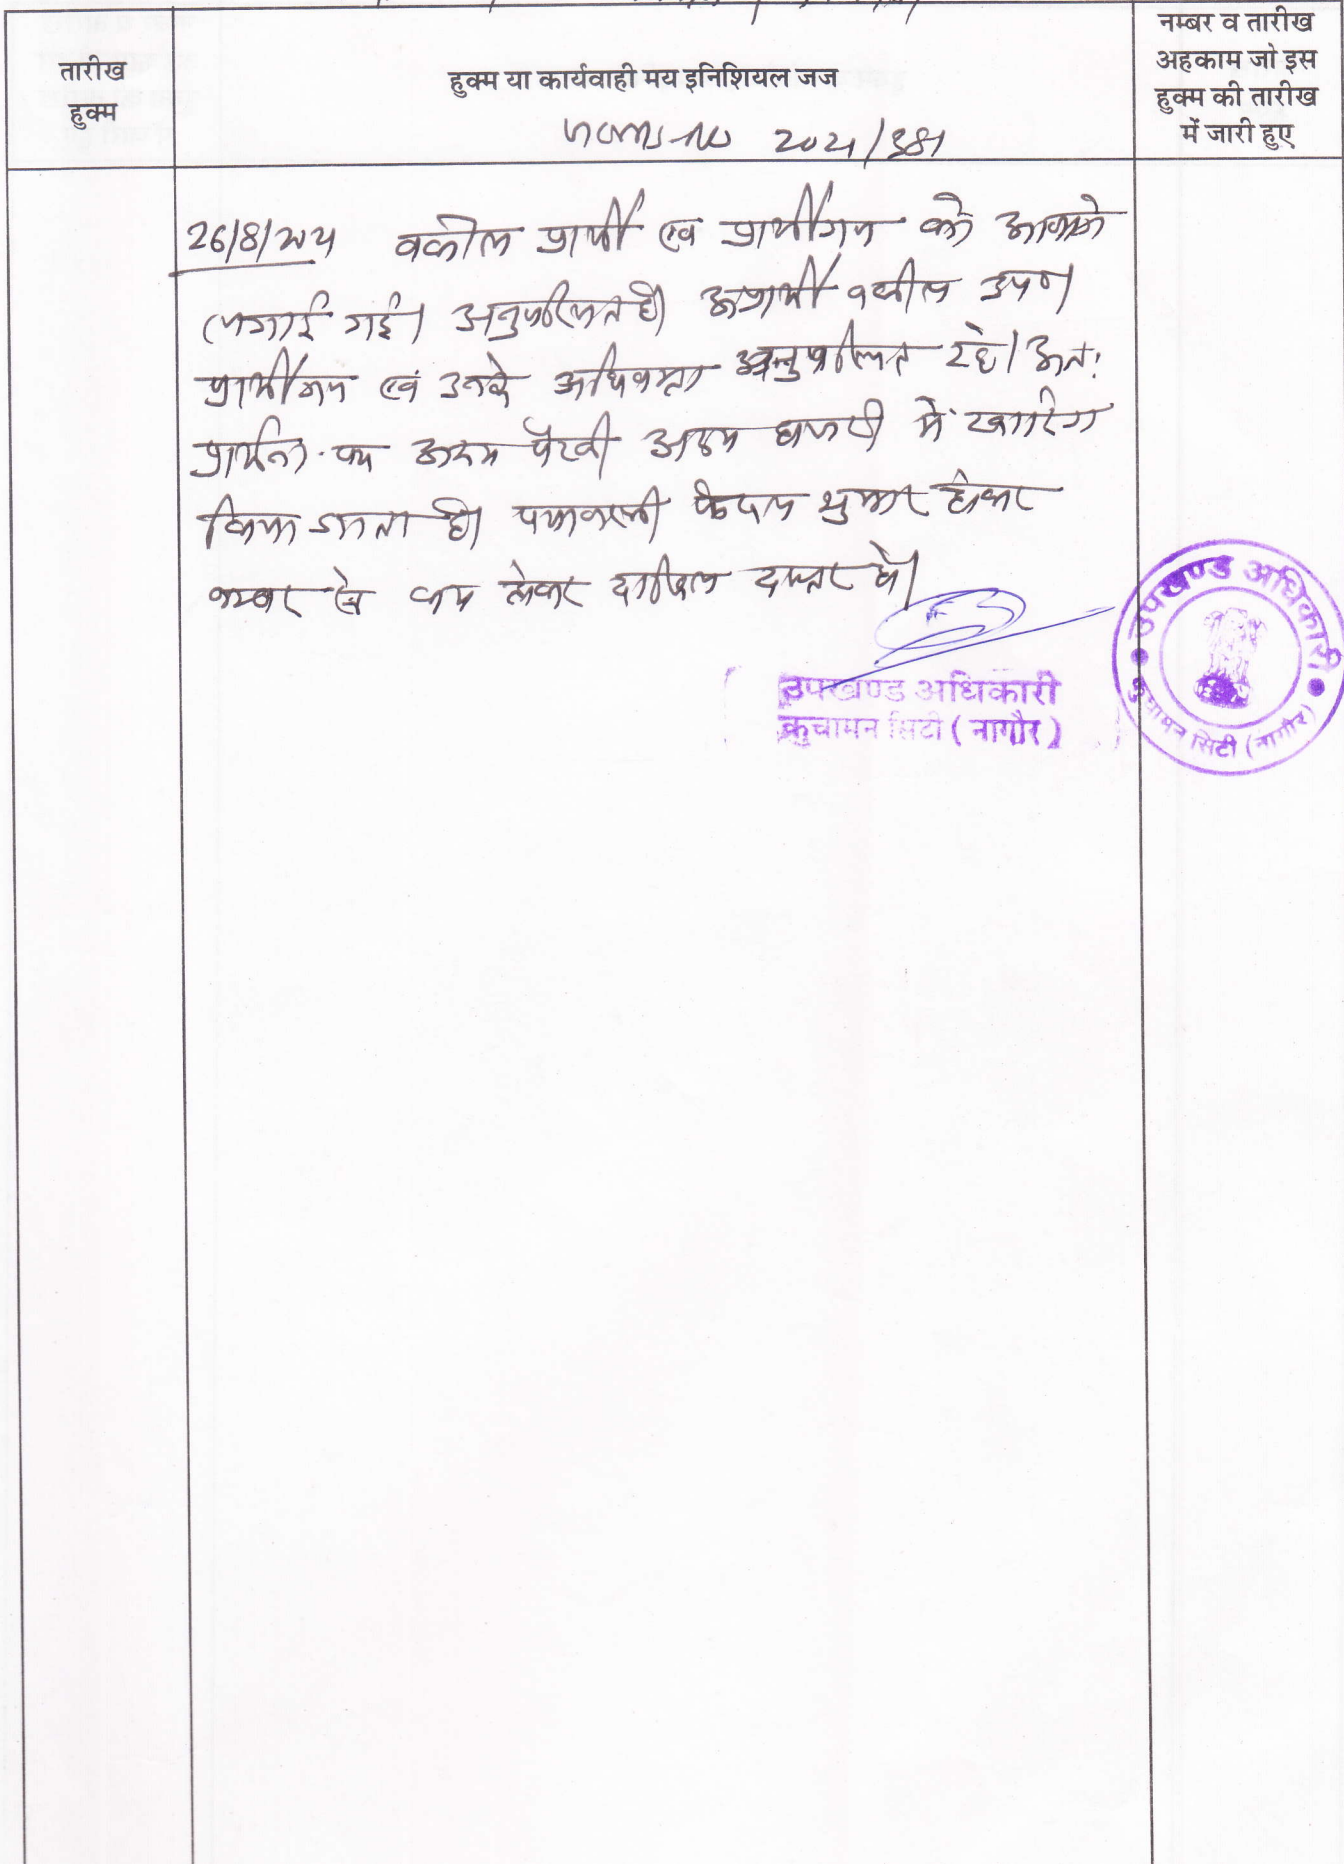 तारीख
हुक्म
हुक्म या कार्यवाही मय इनिशियल जज
नम्बर व तारीख
अहकाम जो इस
हुक्म की तारीख
में जारी हुए
2021/381
26/8/2024 वकील प्रार्थी एवं प्रार्थीगण को आवाजे
लगाई गई। अनुपस्थित है। अप्रार्थी वकील उप०।
प्रार्थीगण एवं उनके अधिवक्ता अनुपस्थित रहे। अत:
प्रार्थना पत्र अदम पैरवी अदम हाजरी में खारिज
किया जाता है। पत्रावली फैसल शुमार होकर
नम्बर से कम होकर दाखिल दफ्तर हो।
उपखण्ड अधिकारी
कुचामन सिटी (नागौर)
उपखण्ड अधिकारी
कुचामन सिटी (नागौर)